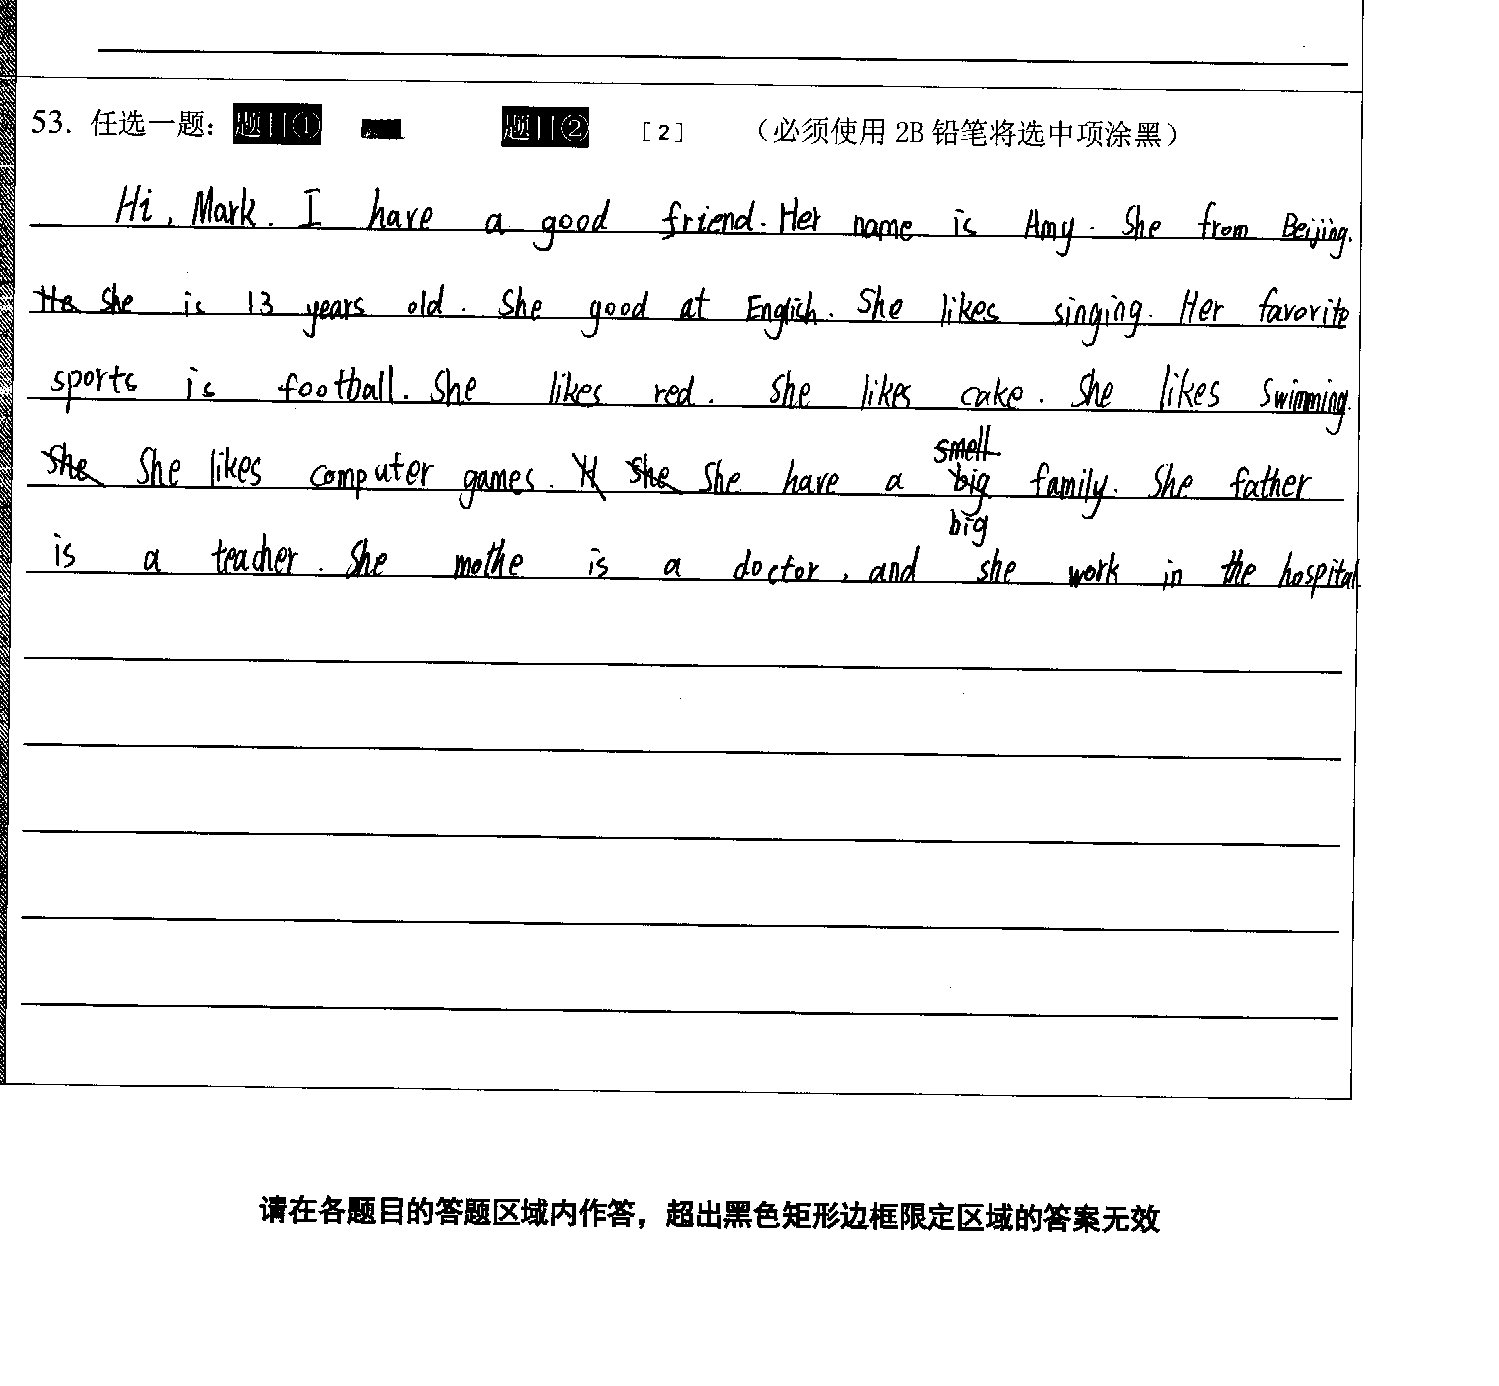 53. 任选一题： 题目① 题目② [2] （必须使用 2B 铅笔将选中项涂黑）
Hi, Mark. I have a good friend. Her name is Amy. She from Beijing.
He She is 13 years old. She good at English. She likes singing. Her favorite
sports is football. She likes red. She likes cake. She likes swimming.
smell
She She likes computer games. H She She have a big family. She father
big
is a teacher. She mothe is a doctor, and she work in the hospital.
请在各题目的答题区域内作答，超出黑色矩形边框限定区域的答案无效